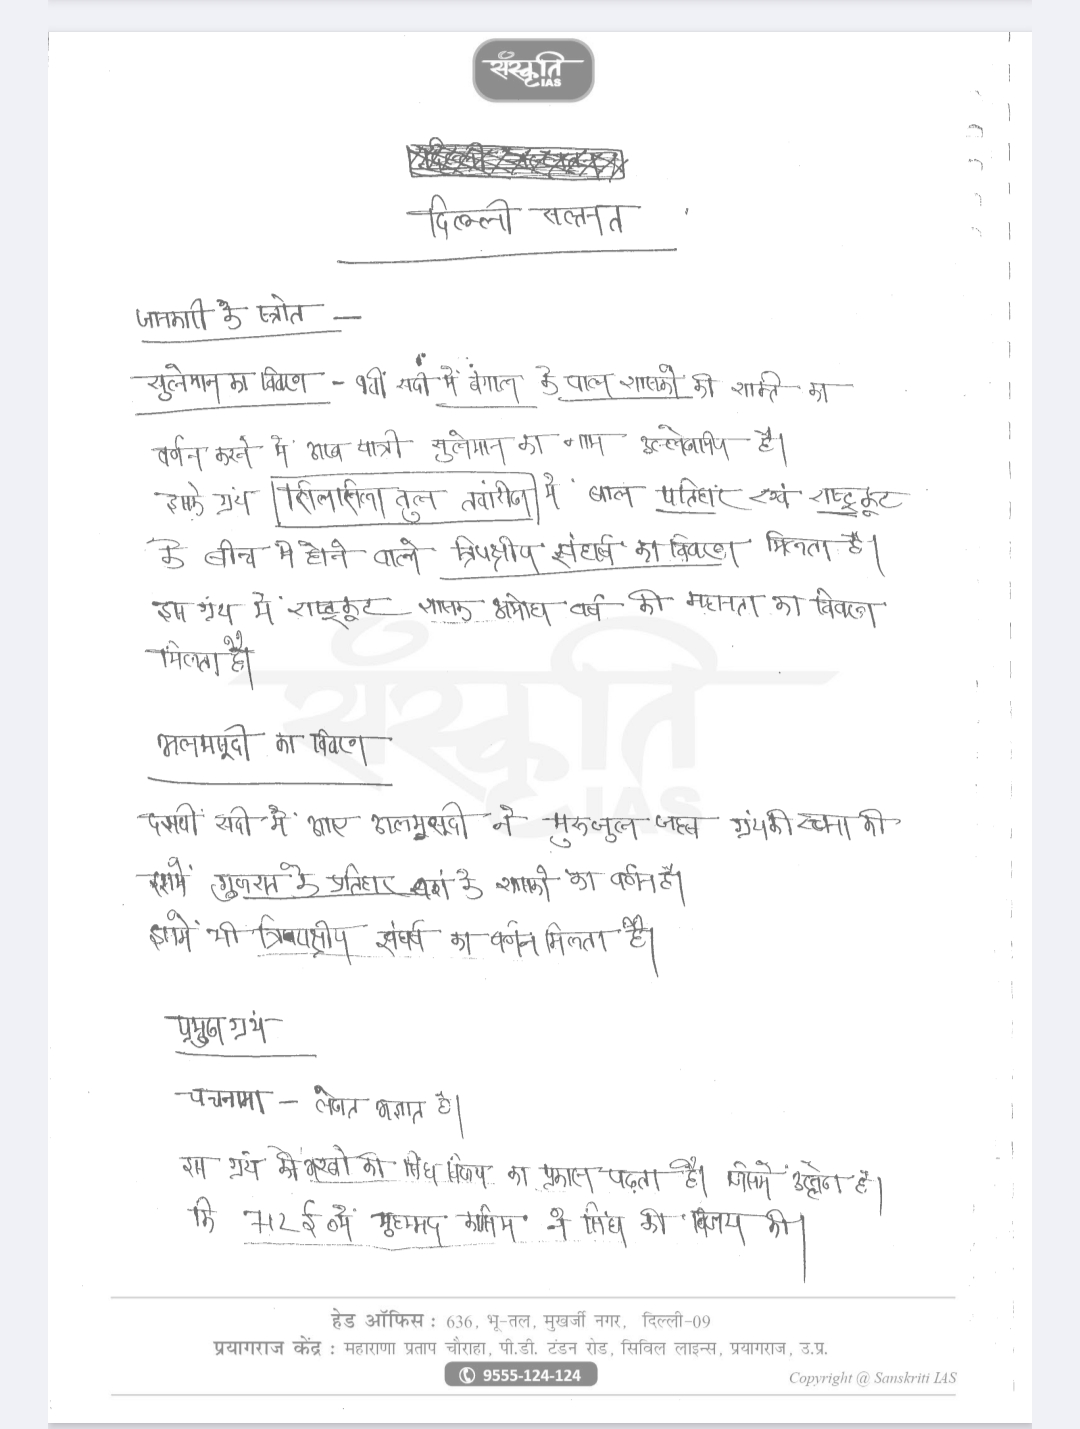 संस्कृति
IAS
दिल्ली सल्तनत
जानकारी के स्त्रोत —
सुलेमान का विवरण - 9वीं सदी में बंगाल के पाल शासको की शक्ति का
वर्णन करने में अरब यात्री सुलेमान का नाम उल्लेखनीय है।
इसके ग्रंथ सिलसिला तुल तवारीख में पाल प्रतिहार एवं राष्ट्रकूट
के बीच मे होने वाले त्रिपक्षीय संघर्ष का विवरण मिलता है।
इस ग्रंथ में राष्ट्रकूट शासक अमोघ वर्ष की महानता का विवरण
मिलता है।
अलमसूदी का विवरण
दसवीं सदी में आए अलमसूदी ने मुरुजुल जहब ग्रंथ की रचना की
इसमें गुजरात के प्रतिहार वंश के शासको का वर्णन है।
इसमें भी त्रिपक्षीय संघर्ष का वर्णन मिलता है।
प्रमुख ग्रंथ
चचनामा - लेखक अज्ञात है।
इस ग्रंथ की अरबो की सिंध विजय का प्रकाश पढ़ता है। जिसमें उल्लेख है।
कि 712 ई० में मुहम्मद कासिम ने सिंध की विजय की।
संस्कृति
IAS
हेड ऑफिस : 636, भू-तल, मुखर्जी नगर, दिल्ली-09
प्रयागराज केंद्र : महाराणा प्रताप चौराहा, पी.डी. टंडन रोड, सिविल लाइन्स, प्रयागराज, उ.प्र.
9555-124-124
Copyright @ Sanskriti IAS